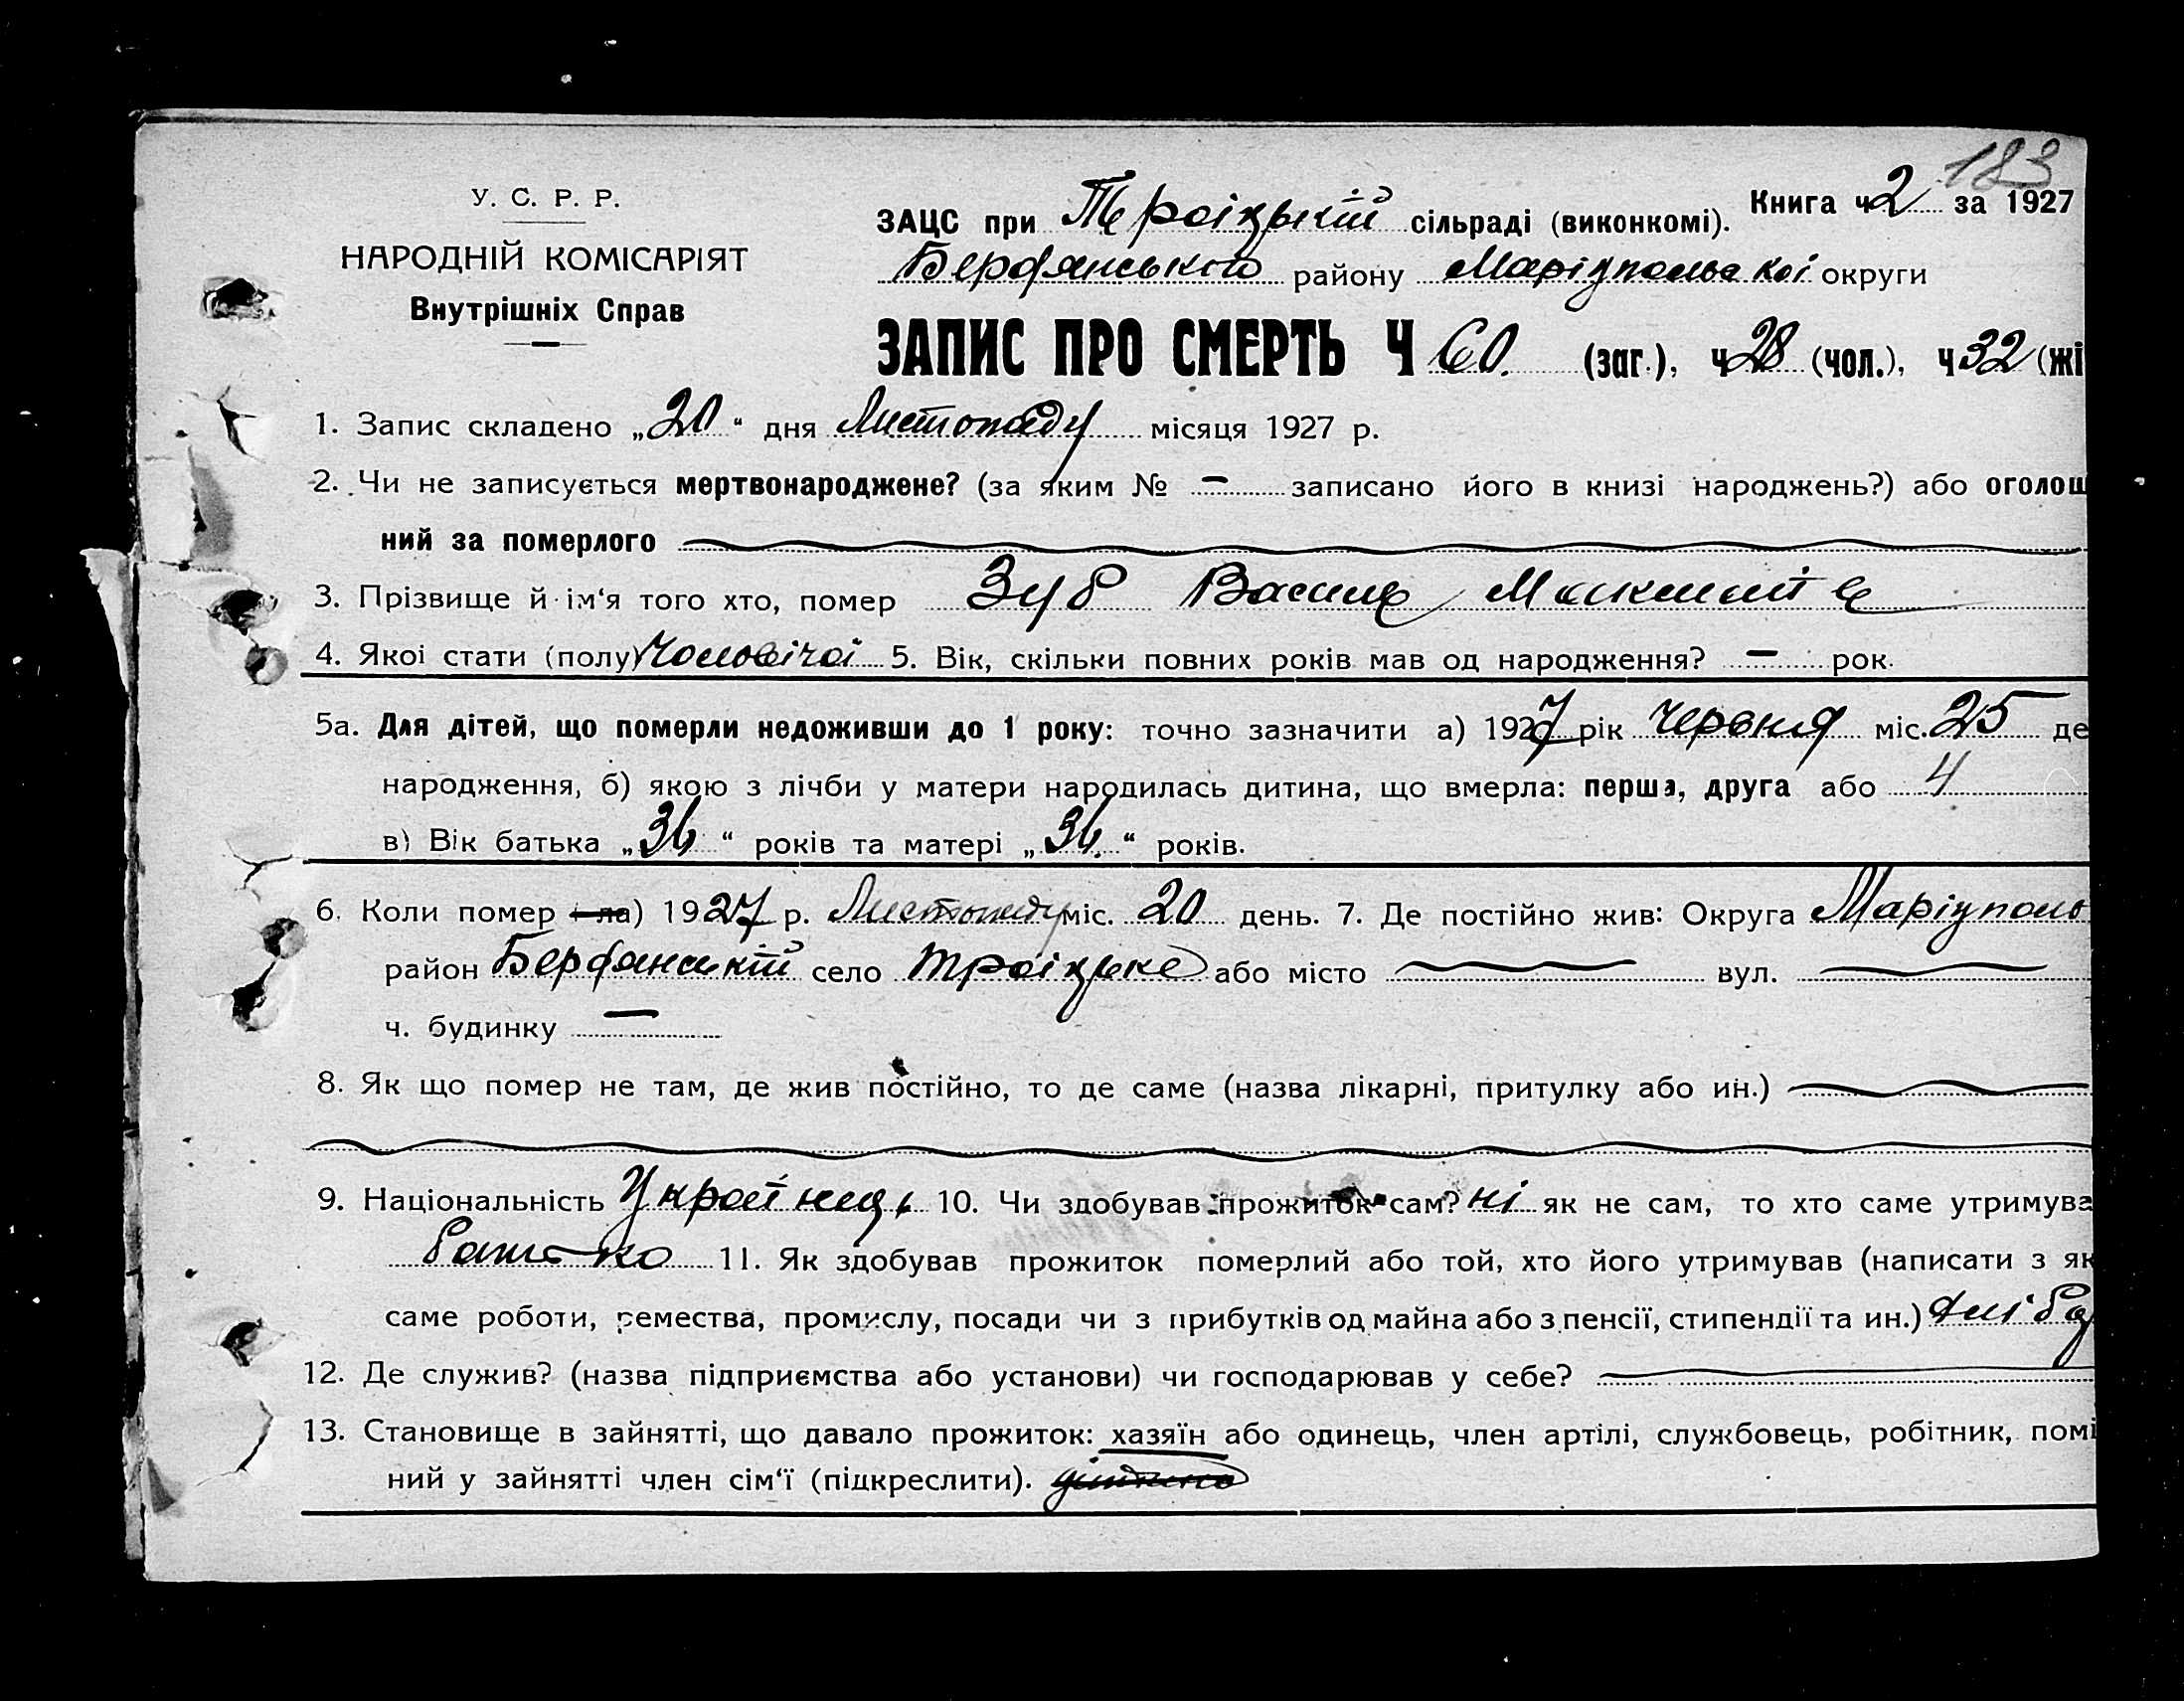 183
У. С. Р. Р.
НАРОДНІЙ КОМІСАРІЯТ
Внутрішніх Справ
ЗАЦС при Троіцькій сільраді (виконкомі). Книга ч 2 за 1927
Бердянського району Маріупольскоі округи
ЗАПИС ПРО СМЕРТЬ Ч 60. (заг.), ч 28 (чол.), ч 32 (жі
1. Запис складено „20“ дня Листопаду місяця 1927 р.
2. Чи не записується мертвонароджене? (за яким № — записано його в книзі народжень?) або оголош
ний за померлого
3. Прізвище й ім‘я того хто, помер Зуб Василь
4. Якоі стати (полу) чоловічоі 5. Вік, скільки повних років мав од народження? — рок.
5а. Для дітей, що померли недоживши до 1 року: точно зазначити а) 1927 рік червня міс. 25 де
народження, б) якою з лічби у матери народилась дитина, що вмерла: перша, друга або 4
в) Вік батька „36“ років та матері „36.“ років.
6. Коли помер (-ла) 1927 р. Листопаду міс. 20 день. 7. Де постійно жив: Округа Маріуполь
район Бердянський село Троіцьке або місто вул.
ч. будинку —
8. Як що помер не там, де жив постійно, то де саме (назва лікарні, притулку або ин.)
9. Національність Украінець 10. Чи здобував прожиток сам? ні як не сам, то хто саме утримува
батько 11. Як здобував прожиток померлий або той, хто його утримував (написати з як
саме роботи, ремества, промислу, посади чи з прибутків од майна або з пенсії, стипендії та ин.)
12. Де служив? (назва підприємства або установи) чи господарював у себе?
13. Становище в зайнятті, що давало прожиток: хазяїн або одинець, член артілі, службовець, робітник, помі
ний у зайнятті член сім‘ї (підкреслити).